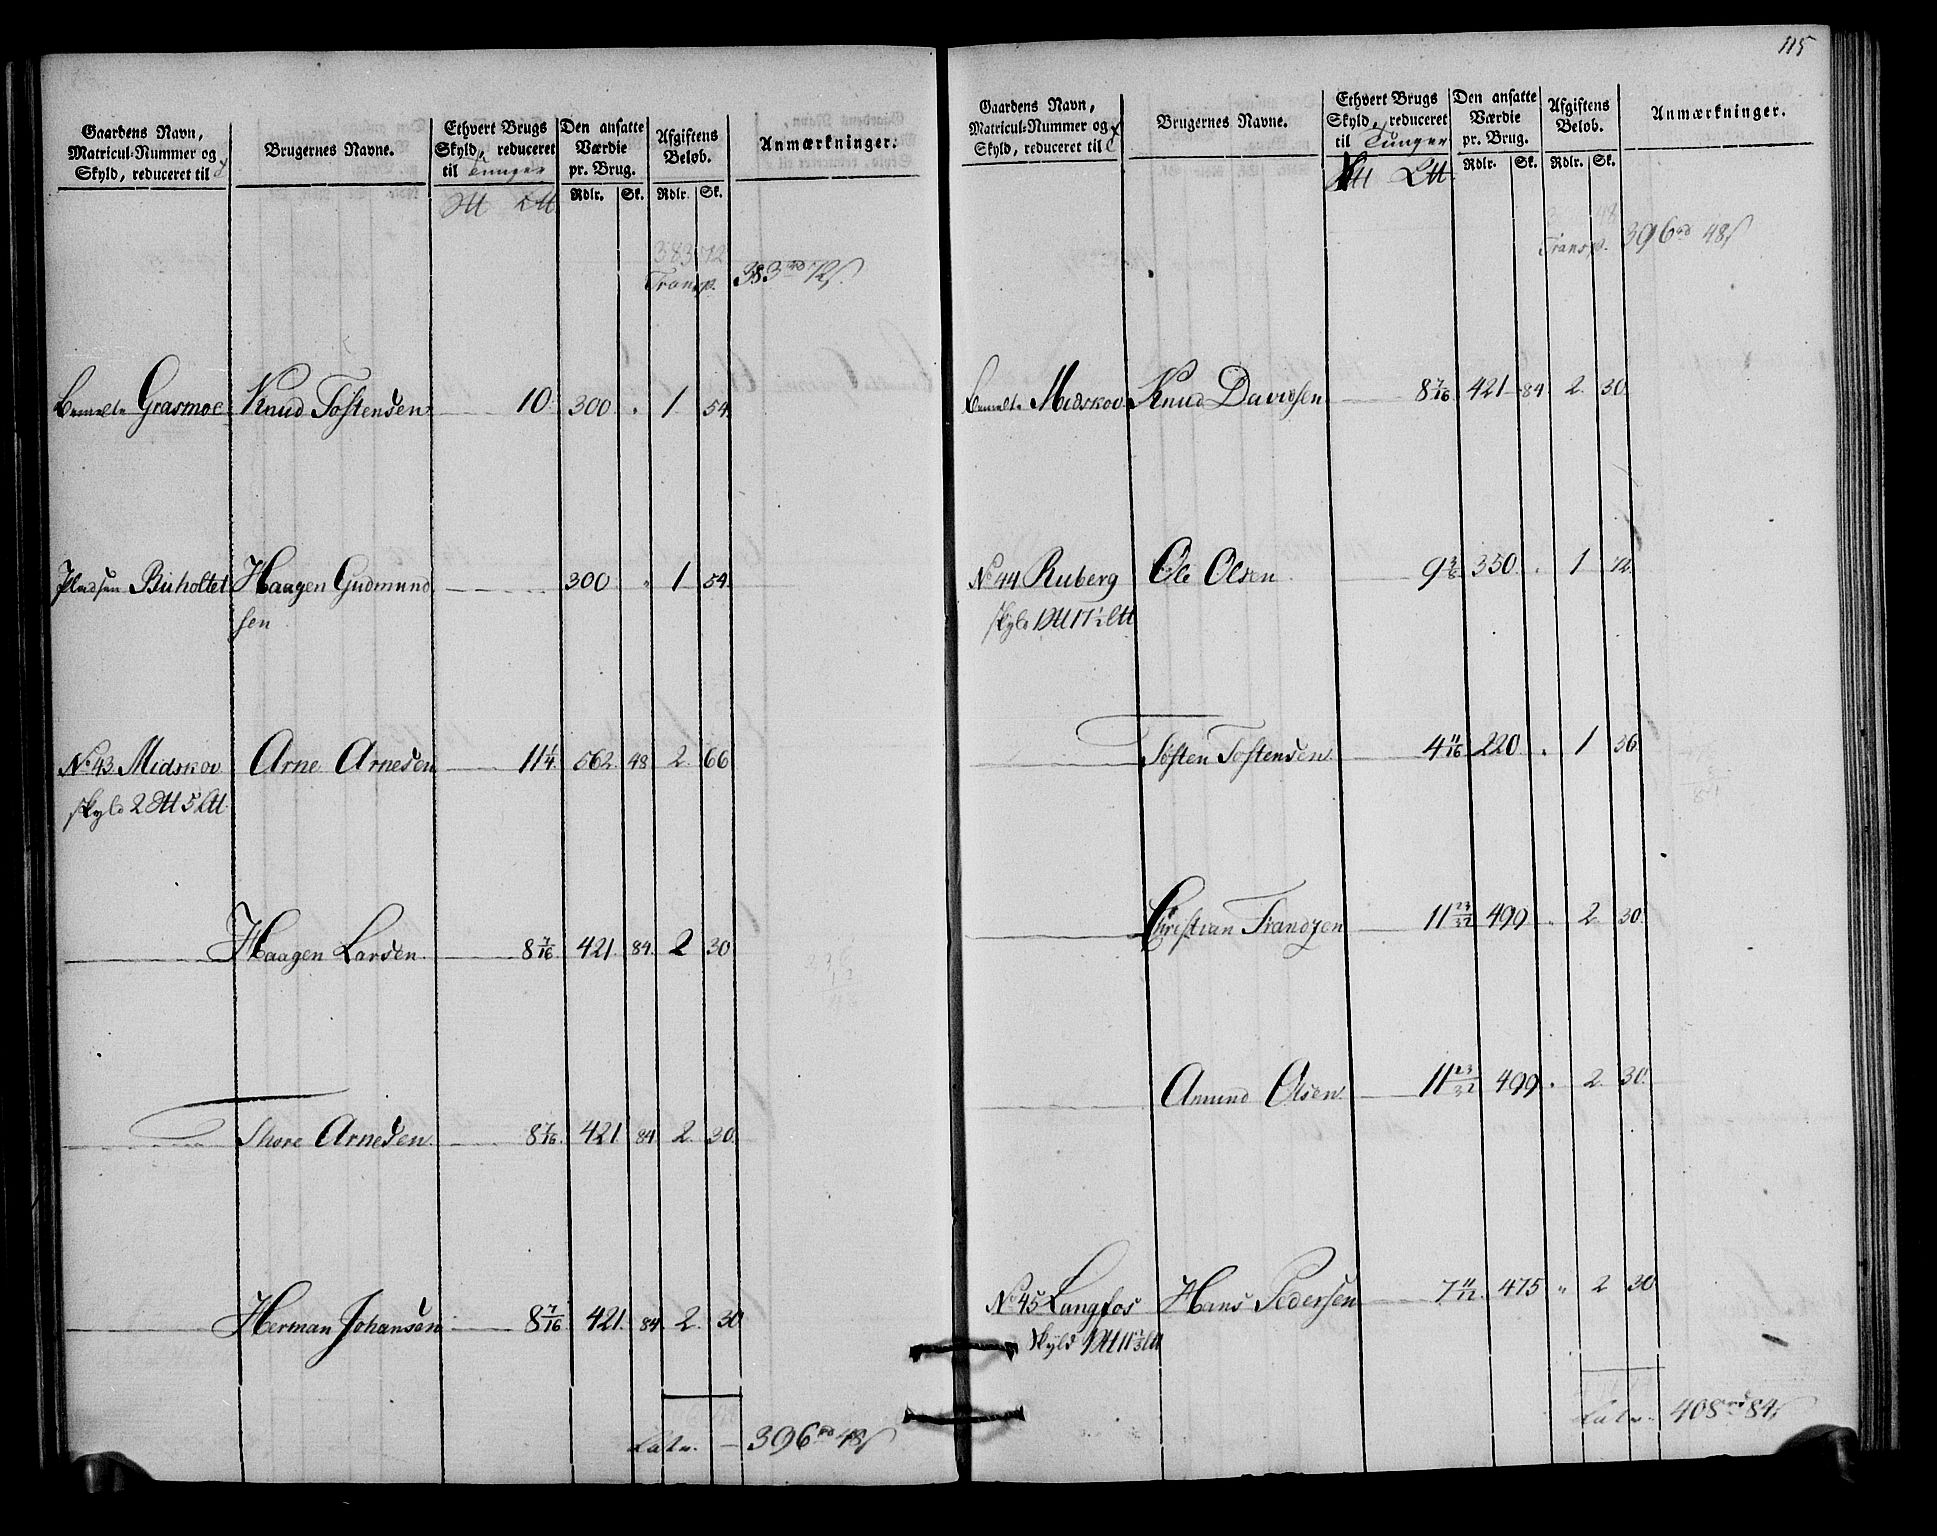 Gaardens Navn, Matricul-Nummer og Skyld, reduceret til
Brugernes Navne.
Ethvert Brugs Skyld, reduceret til Tunger
Den ansatte Værdie pr. Brug.
Afgiftens Beløb.
Anmærkninger.
Rdlr. Sk. Rdlr. Sk.
383 72
Transp. 383 rd 72 s
Grasmoe Knud Tostensen 10. 300 " 1 54.
Pladsen Haagen Gudmund 300 " 1 54.
sen
No 43 Midskov Arne Arnesen 11 1/4. 562. 48 2. 66
skyld 2 5
Haagen Larsen 8 7/16 421. 84. 2 30
Thore Arnesen 8 7/16. 421 84 2. 30.
Herman Johansen 8 7/16 421. 84. 2. 30
Latr. 396 rd 48 s
115
Gaardens Navn, Matricul-Nummer og Skyld, reduceret til
Brugernes Navne.
Ethvert Brugs Skyld, reduceret til Tunger
Den ansatte Værdie pr. Brug.
Afgiftens Beløb.
Anmærkninger.
Rdlr. Sk. Rdlr. Sk.
Transp. 396 rd 48 s
Midskov Knud Davidsen 8 7/16 421 84 2. 30.
No 44 Ruberg Ole Olsen 9 3/8 350. " 1 72.
skyld 1 17 1/2
Tosten Tostensen 4 11/16 220 " 1 36
Christian Frandzen 11 23/32 499 " 2. 30.
Amund Olsen 11 23/32 499 " 2. 30.
No 45 Langfos Hans Pedersen 7 11/12. 475 " 2 30
skyld 1 11
Latr. 408 rd 84 s